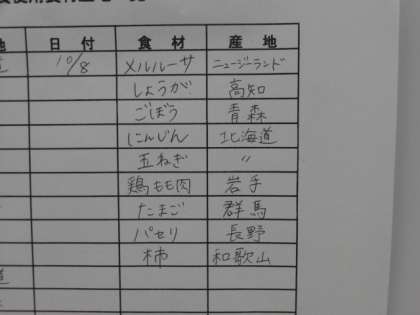 日付 食材 産地
10/8 メルルーサ ニュージーランド
しょうが 高知
ごぼう 青森
にんじん 北海道
玉ねぎ 〃
鶏もも肉 岩手
たまご 群馬
パセリ 長野
柿 和歌山